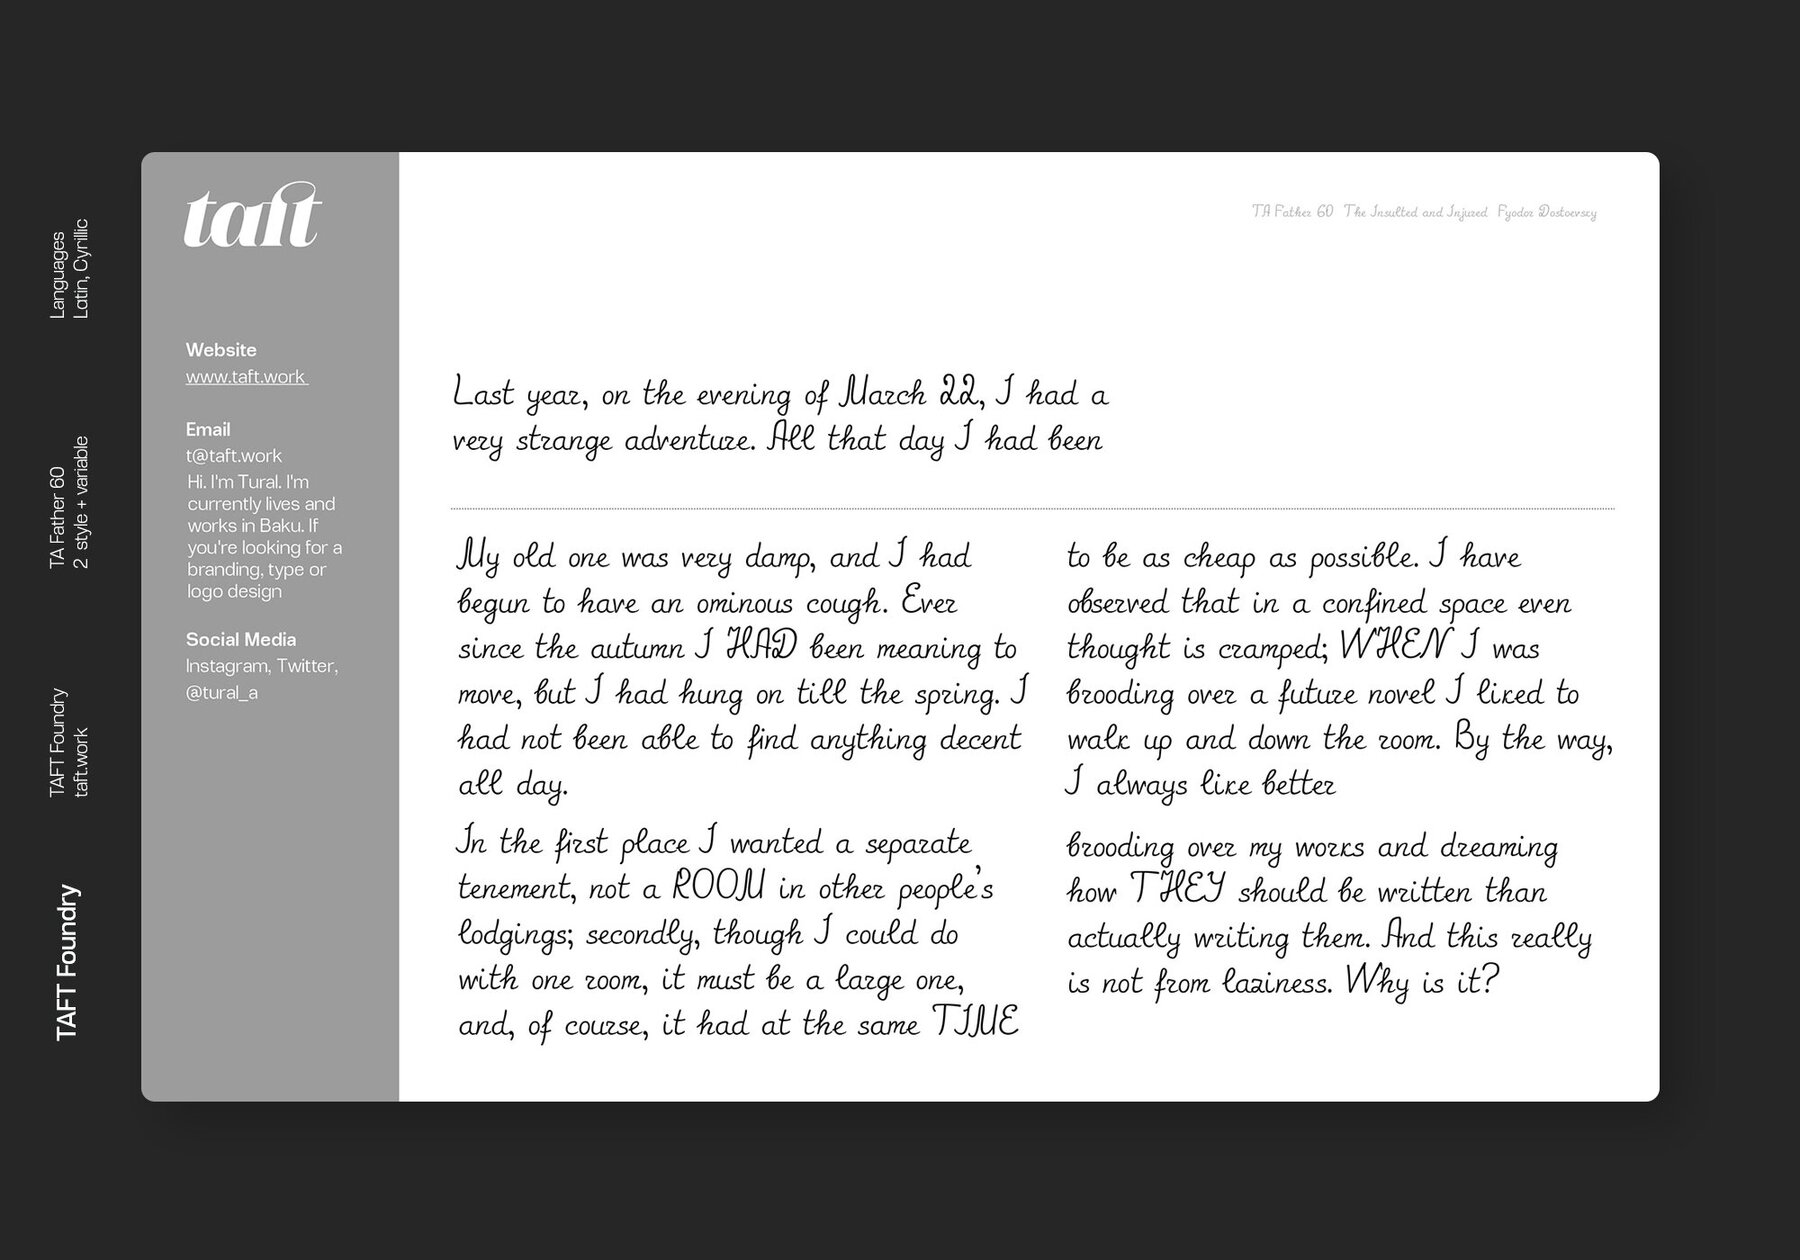 Languages
Latin, Cyrillic
TA Father 60
2 style + variable
TAFT Foundry
taft.work
TAFT Foundry
taft
Website
www.taft.work
Email
t@taft.work
Hi. I'm Tural. I'm
currently lives and
works in Baku. If
you're looking for a
branding, type or
logo design
Social Media
Instagram, Twitter,
@tural_a
TA Father 60 The Insulted and Injured Fyodor Dostoevsky
Last year, on the evening of March 22, I had a
very strange adventure. All that day I had been
My old one was very damp, and I had
begun to have an ominous cough. Ever
since the autumn I HAD been meaning to
move, but I had hung on till the spring. I
had not been able to find anything decent
all day.
In the first place I wanted a separate
tenement, not a ROOM in other people’s
lodgings; secondly, though I could do
with one room, it must be a large one,
and, of course, it had at the same TIME
to be as cheap as possible. I have
observed that in a confined space even
thought is cramped; WHEN I was
brooding over a future novel I liked to
walk up and down the room. By the way,
I always like better
brooding over my works and dreaming
how THEY should be written than
actually writing them. And this really
is not from laziness. Why is it?